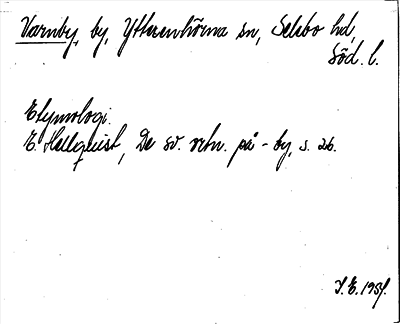 Varnby, by, Ytterenhörna sn, Selebo hd,
Söd. l.
Etymologi.
E. Hellquist, De sv. ortn. på -by, s. 26.